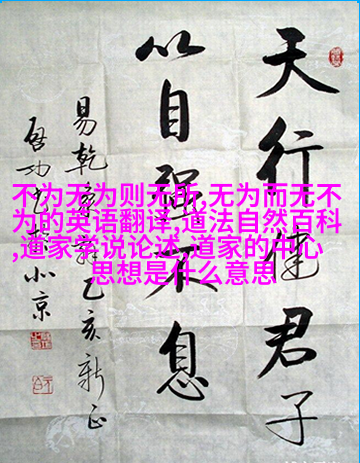 天行健君子
以自強不息
易乾象辭乙亥新正
啟功書於北京
不为无为则无所,无为而无不
为的英语翻译,道法自然百科
,道家学说论述,道家的中心
思想是什么意思